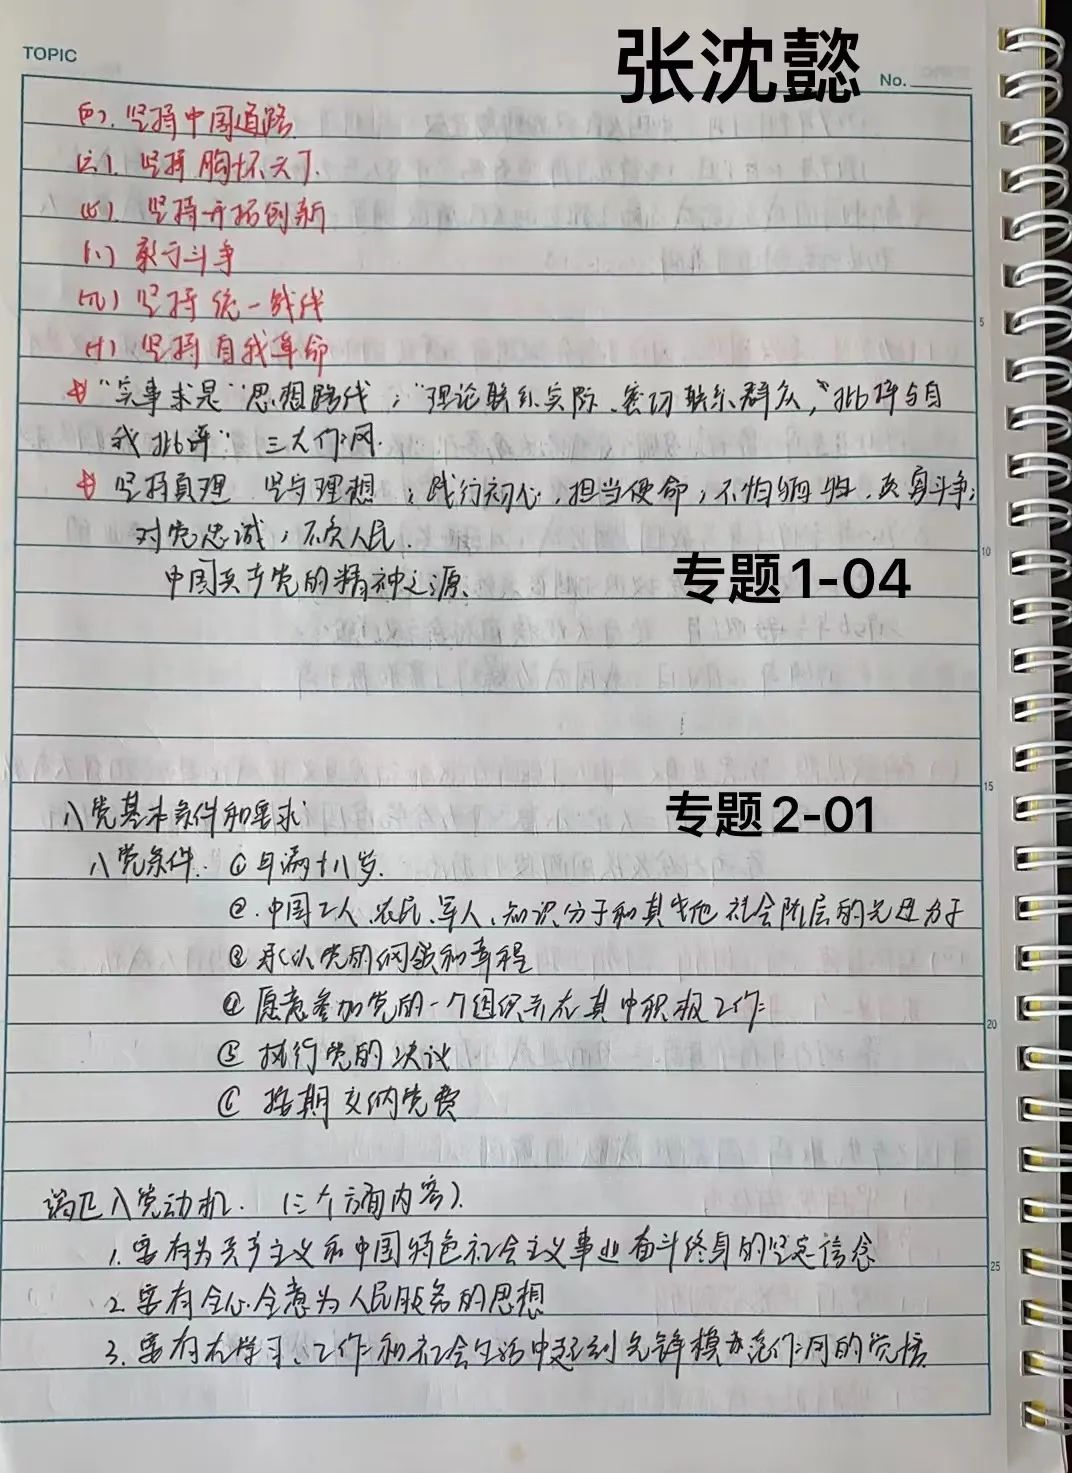 TOPIC
张沈懿
No.
(五). 坚持中国道路
(六). 坚持胸怀天下.
(七). 坚持开拓创新
(八) 敢于斗争
(九) 坚持统一战线
(十) 坚持自我革命
“实事求是”思想路线;“理论联系实际、密切联系群众,“批评与自
我批评” 三大作风.
5
坚持真理 坚守理想;践行初心,担当使命;不怕牺牲,英勇斗争;
对党忠诚,不负人民.
10
中国共产党的精神之源.
专题1-04
15
专题2-01
入党基本条件和要求
入党条件. ① 年满十八岁.
②. 中国工人、农民、军人、知识分子和其他社会阶层的先进分子
③ 承认党的纲领和章程
④ 愿意参加党的一个组织并在其中积极工作
20
⑤ 执行党的决议
⑥ 按期交纳党费
端正入党动机. (三个方面内容).
1. 要有为共产主义和中国特色社会主义事业奋斗终身的坚定信念
25
2. 要有全心全意为人民服务的思想
3. 要有在学习、工作和社会生活中起到先锋模范作用的觉悟